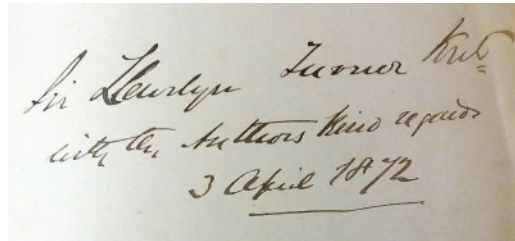 Sir Llewelyn Turner Knt
with the Authors kind regards
3 April 1872